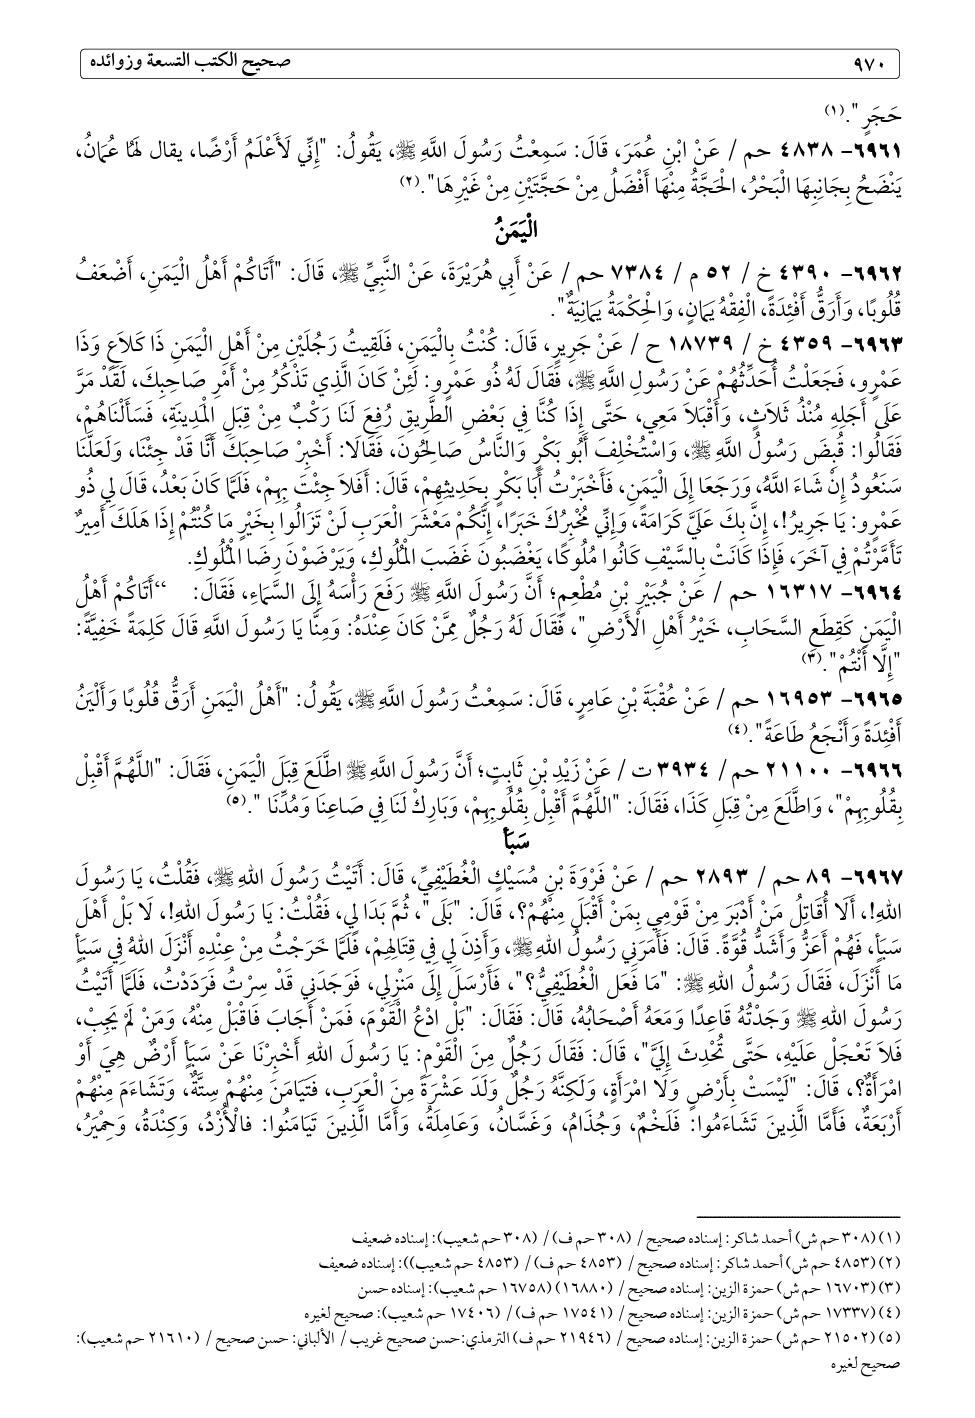 ٩٧٠
صحيح الكتب التسعة وزوائده
حَجَرٍ ".(١)
٦٩٦١- ٤٨٣٨ حم / عَنْ ابْنِ عُمَرَ، قَالَ: سَمِعْتُ رَسُولَ اللَّهِ ﷺ، يَقُولُ: "إِنِّي لَأَعْلَمُ أَرْضًا، يقال لَهَا عُمَانُ،
يَنْضَحُ بِجَانِبِهَا الْبَحْرُ، الْحَجَّةُ مِنْهَا أَفْضَلُ مِنْ حَجَّتَيْنِ مِنْ غَيْرِهَا".(٢)
الْيَمَنُ
٦٩٦٢- ٤٣٩٠ خ / ٥٢ م / ٧٣٨٤ حم / عَنْ أَبِي هُرَيْرَةَ، عَنْ النَّبِيِّ ﷺ، قَالَ: "أَتَاكُمْ أَهْلُ الْيَمَنِ، أَضْعَفُ
قُلُوبًا، وَأَرَقُّ أَفْئِدَةً، الْفِقْهُ يَمَانٍ، وَالْحِكْمَةُ يَمَانِيَةٌ".
٦٩٦٣- ٤٣٥٩ خ / ١٨٧٣٩ ح / عَنْ جَرِيرٍ، قَالَ: كُنْتُ بِالْيَمَنِ، فَلَقِيتُ رَجُلَيْنِ مِنْ أَهْلِ الْيَمَنِ ذَا كَلَاعٍ وَذَا
عَمْرٍو، فَجَعَلْتُ أُحَدِّثُهُمْ عَنْ رَسُولِ اللَّهِ ﷺ، فَقَالَ لَهُ ذُو عَمْرٍو: لَئِنْ كَانَ الَّذِي تَذْكُرُ مِنْ أَمْرِ صَاحِبِكَ، لَقَدْ مَرَّ
عَلَى أَجَلِهِ مُنْذُ ثَلَاثٍ، وَأَقْبَلَا مَعِي، حَتَّى إِذَا كُنَّا فِي بَعْضِ الطَّرِيقِ رُفِعَ لَنَا رَكْبٌ مِنْ قِبَلِ الْمَدِينَةِ، فَسَأَلْنَاهُمْ،
فَقَالُوا: قُبِضَ رَسُولُ اللَّهِ ﷺ، وَاسْتُخْلِفَ أَبُو بَكْرٍ وَالنَّاسُ صَالِحُونَ، فَقَالَا: أَخْبِرْ صَاحِبَكَ أَنَّا قَدْ جِئْنَا، وَلَعَلَّنَا
سَنَعُودُ إِنْ شَاءَ اللَّهُ، وَرَجَعَا إِلَى الْيَمَنِ، فَأَخْبَرْتُ أَبَا بَكْرٍ بِحَدِيثِهِمْ، قَالَ: أَفَلَا جِئْتَ بِهِمْ، فَلَمَّا كَانَ بَعْدُ، قَالَ لِي ذُو
عَمْرٍو: يَا جَرِيرُ!، إِنَّ بِكَ عَلَيَّ كَرَامَةً، وَإِنِّي مُخْبِرُكَ خَبَرًا، إِنَّكُمْ مَعْشَرَ الْعَرَبِ لَنْ تَزَالُوا بِخَيْرٍ مَا كُنْتُمْ إِذَا هَلَكَ أَمِيرٌ
تَأَمَّرْتُمْ فِي آخَرَ، فَإِذَا كَانَتْ بِالسَّيْفِ كَانُوا مُلُوكًا، يَغْضَبُونَ غَضَبَ الْمُلُوكِ، وَيَرْضَوْنَ رِضَا الْمُلُوكِ.
٦٩٦٤- ١٦٣١٧ حم / عَنْ جُبَيْرِ بْنِ مُطْعِمٍ؛ أَنَّ رَسُولَ اللَّهِ ﷺ رَفَعَ رَأْسَهُ إِلَى السَّمَاءِ، فَقَالَ: "أَتَاكُمْ أَهْلُ
الْيَمَنِ كَقِطَعِ السَّحَابِ، خَيْرُ أَهْلِ الْأَرْضِ"، فَقَالَ لَهُ رَجُلٌ مِمَّنْ كَانَ عِنْدَهُ: وَمِنَّا يَا رَسُولَ اللَّهِ قَالَ كَلِمَةً خَفِيَّةً:
"إِلَّا أَنْتُمْ".(٣)
٦٩٦٥- ١٦٩٥٣ حم / عَنْ عُقْبَةَ بْنِ عَامِرٍ، قَالَ: سَمِعْتُ رَسُولَ اللَّهِ ﷺ، يَقُولُ: "أَهْلُ الْيَمَنِ أَرَقُّ قُلُوبًا وَأَلْيَنُ
أَفْئِدَةً وَأَنْجَعُ طَاعَةً".(٤)
٦٩٦٦- ٢١١٠٠ حم/ ٣٩٣٤ ت / عَنْ زَيْدِ بْنِ ثَابِتٍ؛ أَنَّ رَسُولَ اللَّهِ ﷺ اطَّلَعَ قِبَلَ الْيَمَنِ، فَقَالَ: "اللَّهُمَّ أَقْبِلْ
بِقُلُوبِهِمْ"، وَاطَّلَعَ مِنْ قِبَلِ كَذَا، فَقَالَ: "اللَّهُمَّ أَقْبِلْ بِقُلُوبِهِمْ، وَبَارِكْ لَنَا فِي صَاعِنَا وَمُدِّنَا ".(٥)
سَبَأ
٦٩٦٧- ٨٩ حم / ٢٨٩٣ حم / عَنْ فَرْوَةَ بْنِ مُسَيْكٍ الْغُطَيْفِيِّ، قَالَ: أَتَيْتُ رَسُولَ اللهِ ﷺ، فَقُلْتُ، يَا رَسُولَ
اللهِ!، أَلَا أُقَاتِلُ مَنْ أَدْبَرَ مِنْ قَوْمِي بِمَنْ أَقْبَلَ مِنْهُمْ؟، قَالَ: "بَلَى"، ثُمَّ بَدَا لِي، فَقُلْتُ: يَا رَسُولَ اللهِ!، لَا بَلْ أَهْلَ
سَبَأٍ، فَهُمْ أَعَزُّ وَأَشَدُّ قُوَّةً. قَالَ: فَأَمَرَنِي رَسُولُ اللهِ ﷺ، وَأَذِنَ لِي فِي قِتَالِهِمْ، فَلَمَّا خَرَجْتُ مِنْ عِنْدِهِ أَنْزَلَ اللهُ فِي سَبَأٍ
مَا أَنْزَلَ، فَقَالَ رَسُولُ اللهِ ﷺ: "مَا فَعَلَ الْغُطَيْفِيُّ؟"، فَأَرْسَلَ إِلَى مَنْزِلِي، فَوَجَدَنِي قَدْ سِرْتُ فَرَدَدْتُ، فَلَمَّا أَتَيْتُ
رَسُولَ اللهِ ﷺ وَجَدْتُهُ قَاعِدًا وَمَعَهُ أَصْحَابُهُ، قَالَ: فَقَالَ: "بَلِ ادْعُ الْقَوْمَ، فَمَنْ أَجَابَ فَاقْبَلْ مِنْهُ، وَمَنْ لَمْ يَجِبْ،
فَلَا تَعْجَلْ عَلَيْهِ، حَتَّى تُحْدِثَ إِلَيَّ"، قَالَ: فَقَالَ رَجُلٌ مِنَ الْقَوْمِ: يَا رَسُولَ اللهِ أَخْبِرْنَا عَنْ سَبَأٍ أَرْضٌ هِيَ أَوْ
امْرَأَةٌ؟، قَالَ: "لَيْسَتْ بِأَرْضٍ وَلَا امْرَأَةٍ، وَلَكِنَّهُ رَجُلٌ وَلَدَ عَشْرَةً مِنَ الْعَرَبِ، فَتَيَامَنَ مِنْهُمْ سِتَّةٌ، وَتَشَاءَمَ مِنْهُمْ
أَرْبَعَةٌ، فَأَمَّا الَّذِينَ تَشَاءَمُوا: فَلَخْمٌ، وَجُذَامُ، وَغَسَّانُ، وَعَامِلَةُ، وَأَمَّا الَّذِينَ تَيَامَنُوا: فالْأُزْدُ، وَكِنْدَةُ، وَحِمْيَرُ،
(١) (٣٠٨ حم ش) أحمد شاكر: إسناده صحيح / (٣٠٨ حم ف) / (٣٠٨ حم شعيب): إسناده ضعيف
(٢) (٤٨٥٣ حم ش) أحمد شاكر: إسناده صحيح / (٤٨٥٣ حم ف) / (٤٨٥٣ حم شعيب)): إسناده ضعيف
(٣) (١٦٧٠٣ حم ش) حمزة الزين: إسناده صحيح / (١٦٨٨٠) (١٦٧٥٨ حم شعيب): إسناده حسن
(٤) (١٧٣٣٧ حم ش) حمزة الزين: إسناده صحيح / (١٧٥٤١ حم ف)/ (١٧٤٠٦ حم شعيب): صحيح لغيره
(٥) (٢١٥٠٢ حم ش) حمزة الزين: إسناده صحيح / (٢١٩٤٦ حم ف) الترمذي:حسن صحيح غريب / الألباني: حسن صحيح / (٢١٦١٠ حم شعيب):
صحيح لغيره